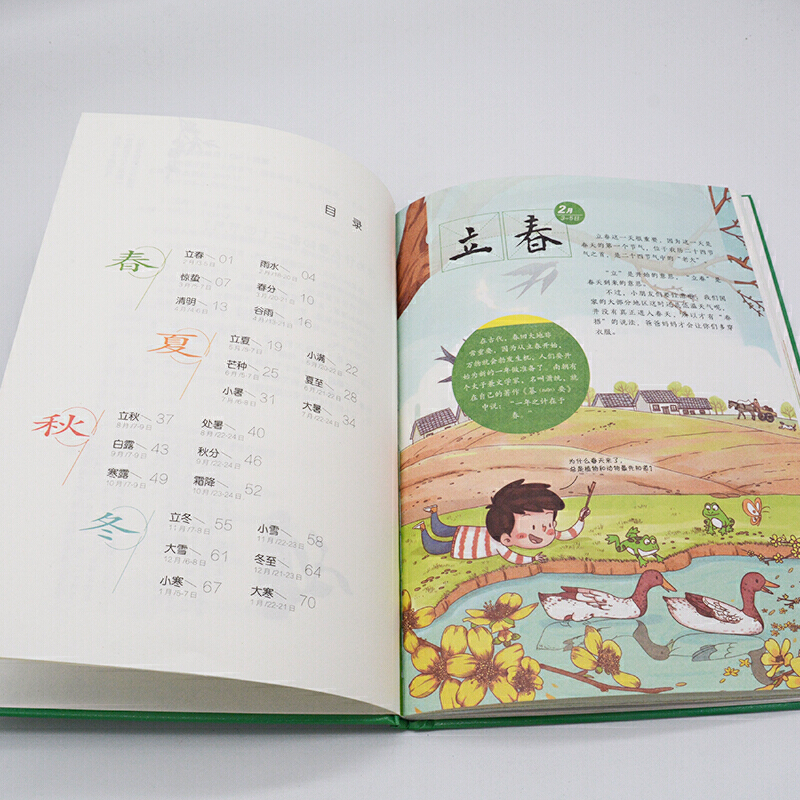 目 录
春
立春 01
2月/3-5日
雨水 04
2月/18-20日
惊蛰 07
3月/5-7日
春分 10
3月/20-21日
清明 13
4月/4-6日
谷雨 16
4月/19-21日
夏
立夏 19
5月/5-7日
小满 22
5月/20-22日
芒种 25
6月/5-7日
夏至 28
6月/21-22日
小暑 31
7月/6-8日
大暑 34
7月/22-24日
秋
立秋 37
8月/7-9日
处暑 40
8月/22-24日
白露 43
9月/7-9日
秋分 46
9月/22-24日
寒露 49
10月/7-9日
霜降 52
10月/23-24日
冬
立冬 55
11月/7-8日
小雪 58
11月/22-23日
大雪 61
12月/6-8日
冬至 64
12月/21-23日
小寒 67
1月/5-7日
大寒 70
1月/19-21日
2月
3-5日
立春
立春这一天很重要，因为这一天是
春天的第一个节气，位于我格二十四节
气之首，是二十四节气中的“老大”
“立”是开始的意思，“立春”是
春天到来的意思。
不过，小朋友们要注意哟，我们国
家的大部分地区这时还是低温天气呢，
并没有真正进入春天，所以才有“春
捂”的说法，爸爸妈妈才会让你们多穿
衣服。
在古代，春朝大地非
常重要，因为从立春开始，
万物就会勃发生机，人们要开
始为新的一年做准备了。南朝有
个大才子兼文学家，名叫萧绎，他
在自己的著作《纂（zuǎn）要》
中说：“一年之计在于
春。”
为什么春天来了，
总是植物和动物最先知道？